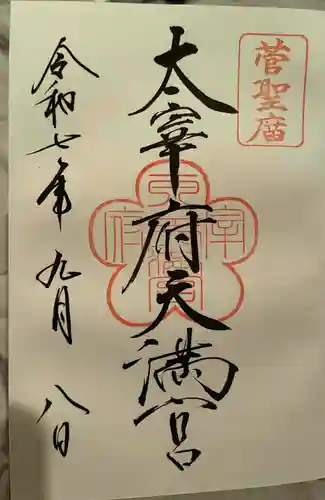 菅聖廟
太宰府天満宮
令和七年九月八日